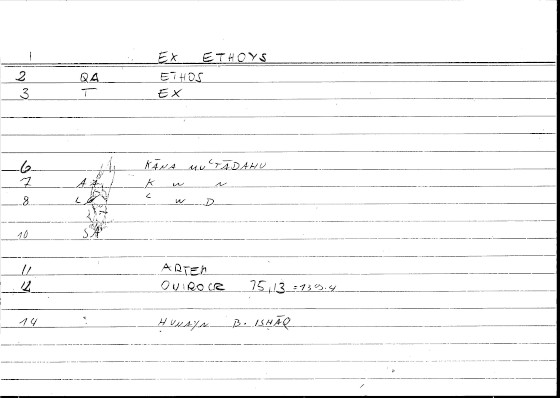 1 EX ETHOYS
2 QA ETHOS
3 T EX
6 KĀNA MUʿTĀDAHU
7 K W N
8 ʿ W D
10
11 ARTEM
12 QUIROCR 75,13 =139.4
14 HUNAYN B. ISHĀQ